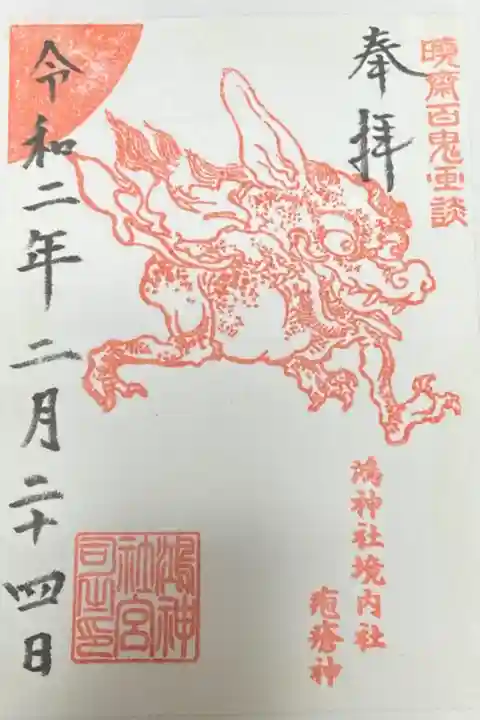 暁齋百鬼画談
奉拝
鴻神社境内社
疱瘡神
鴻神社宮司之印
令和二年二月二十四日